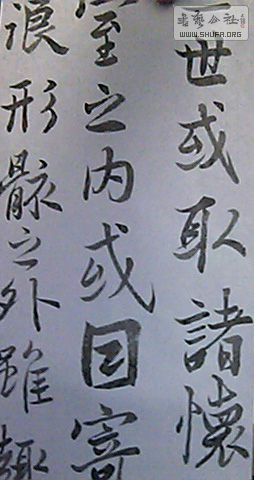 世或取諸懷
室之内或因寄
浪形骸之外雖趣
書艺公社
WWW.SHUFR.ORG